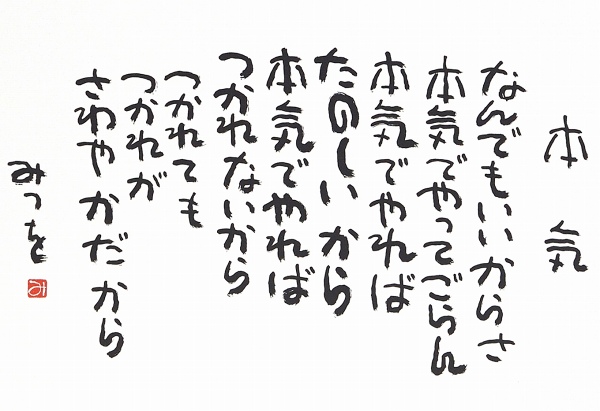 本気
なんでもいいからさ
本気でやってごらん
本気でやれば
たのしいから
本気でやれば
つかれないから
つかれても
つかれが
さわやかだから
みつを
み